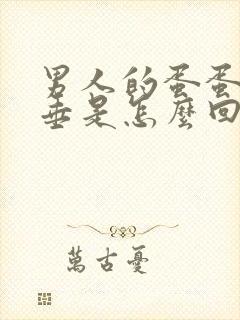 男人的蛋蛋
垂是怎麼回
萬古憂